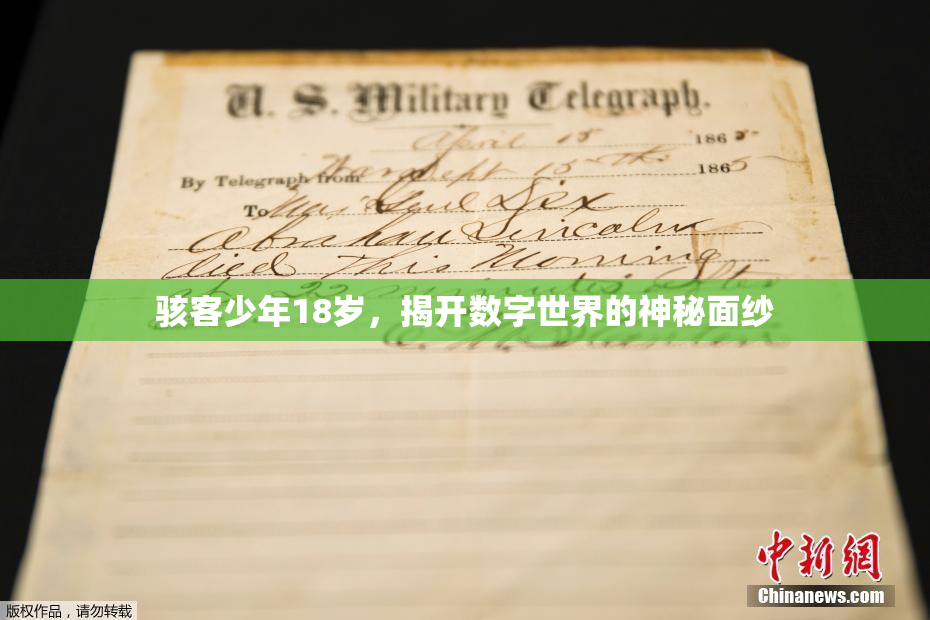 U. S. Military Telegraph.
April 15 1865
By Telegraph from War Dept 15th 1865
To Maj Genl Dix
Abraham Lincoln
died This Morning
at 22 minutes after
骇客少年18岁，揭开数字世界的神秘面纱
E. M. Stanton
中新网
Chinanews.com
版权作品，请勿转载